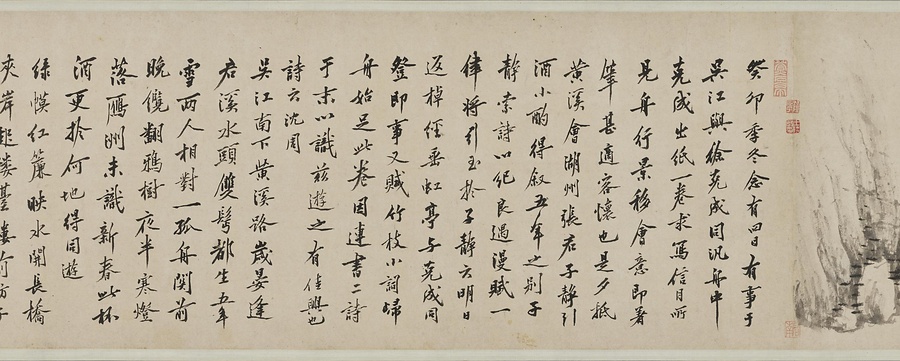 癸卯季冬念有四日有事于
吳江與徐克成同汎舟中
克成出紙一卷求寫信目所
見舟行景移會意即着
筆甚適容懷也是夕抵
黃溪會湖州張君子靜引
酒小酌得敘五年之別子
靜索詩以紀良遇漫賦一
律將引至於子靜云明日
返棹經垂虹亭与克成同
登即事又賦竹枝小詞歸
舟始足此卷因連書二詩
于末以識茲遊之有佳興也
詩云沈周
吳江南下黃溪路歲晏逢
君溪水頭雙髩都生五年
雪兩人相對一孤舟閑前
晚儳翻鴉樹夜半寒燈
落鴈洲未識新春此杯
酒更於何地得同遊
綠幙紅簾映水開長橋
夾岸起樓臺